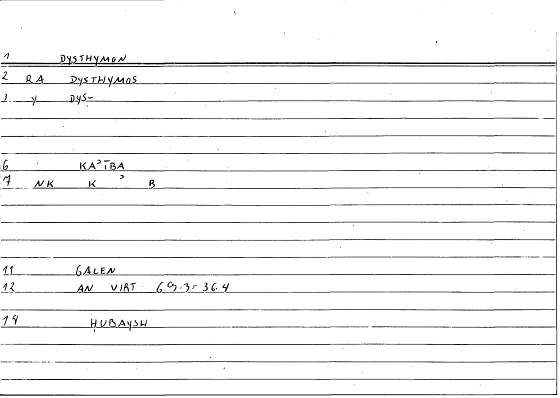 1 DYSTHYMON
2 RA DYSTHYMOS
3 Y DYS-
6 KAʾĪBA
7 NK K ʾ B
11 GALEN
12 AN VIRT 69.3= 36.4
14 HUBAYSH